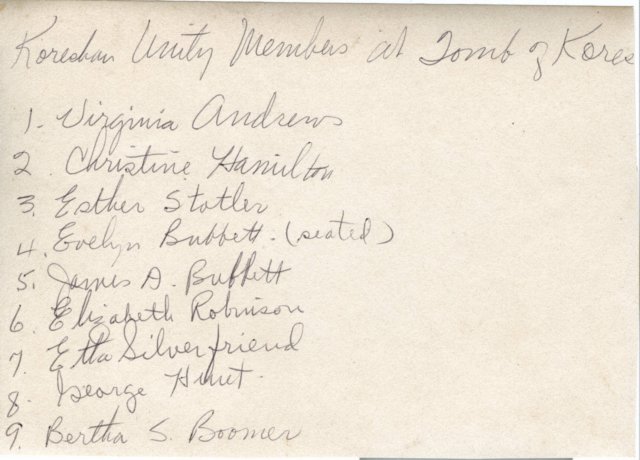 Koreshan Unity Members at Tomb of Kores
1. Virginia Andrews
2. Christine Hamilton
3. Esther Stotler
4. Evelyn Bubbett. (seated)
5. James A. Bubbett
6. Elizabeth Robinson
7. Etta Silverfriend
8. George Hunt.
9. Bertha S. Boomer